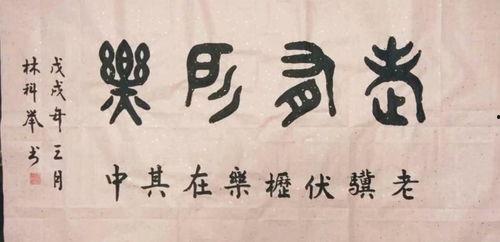 老有所樂
老驥伏櫪樂在其中
戊戌年三月
林科举书